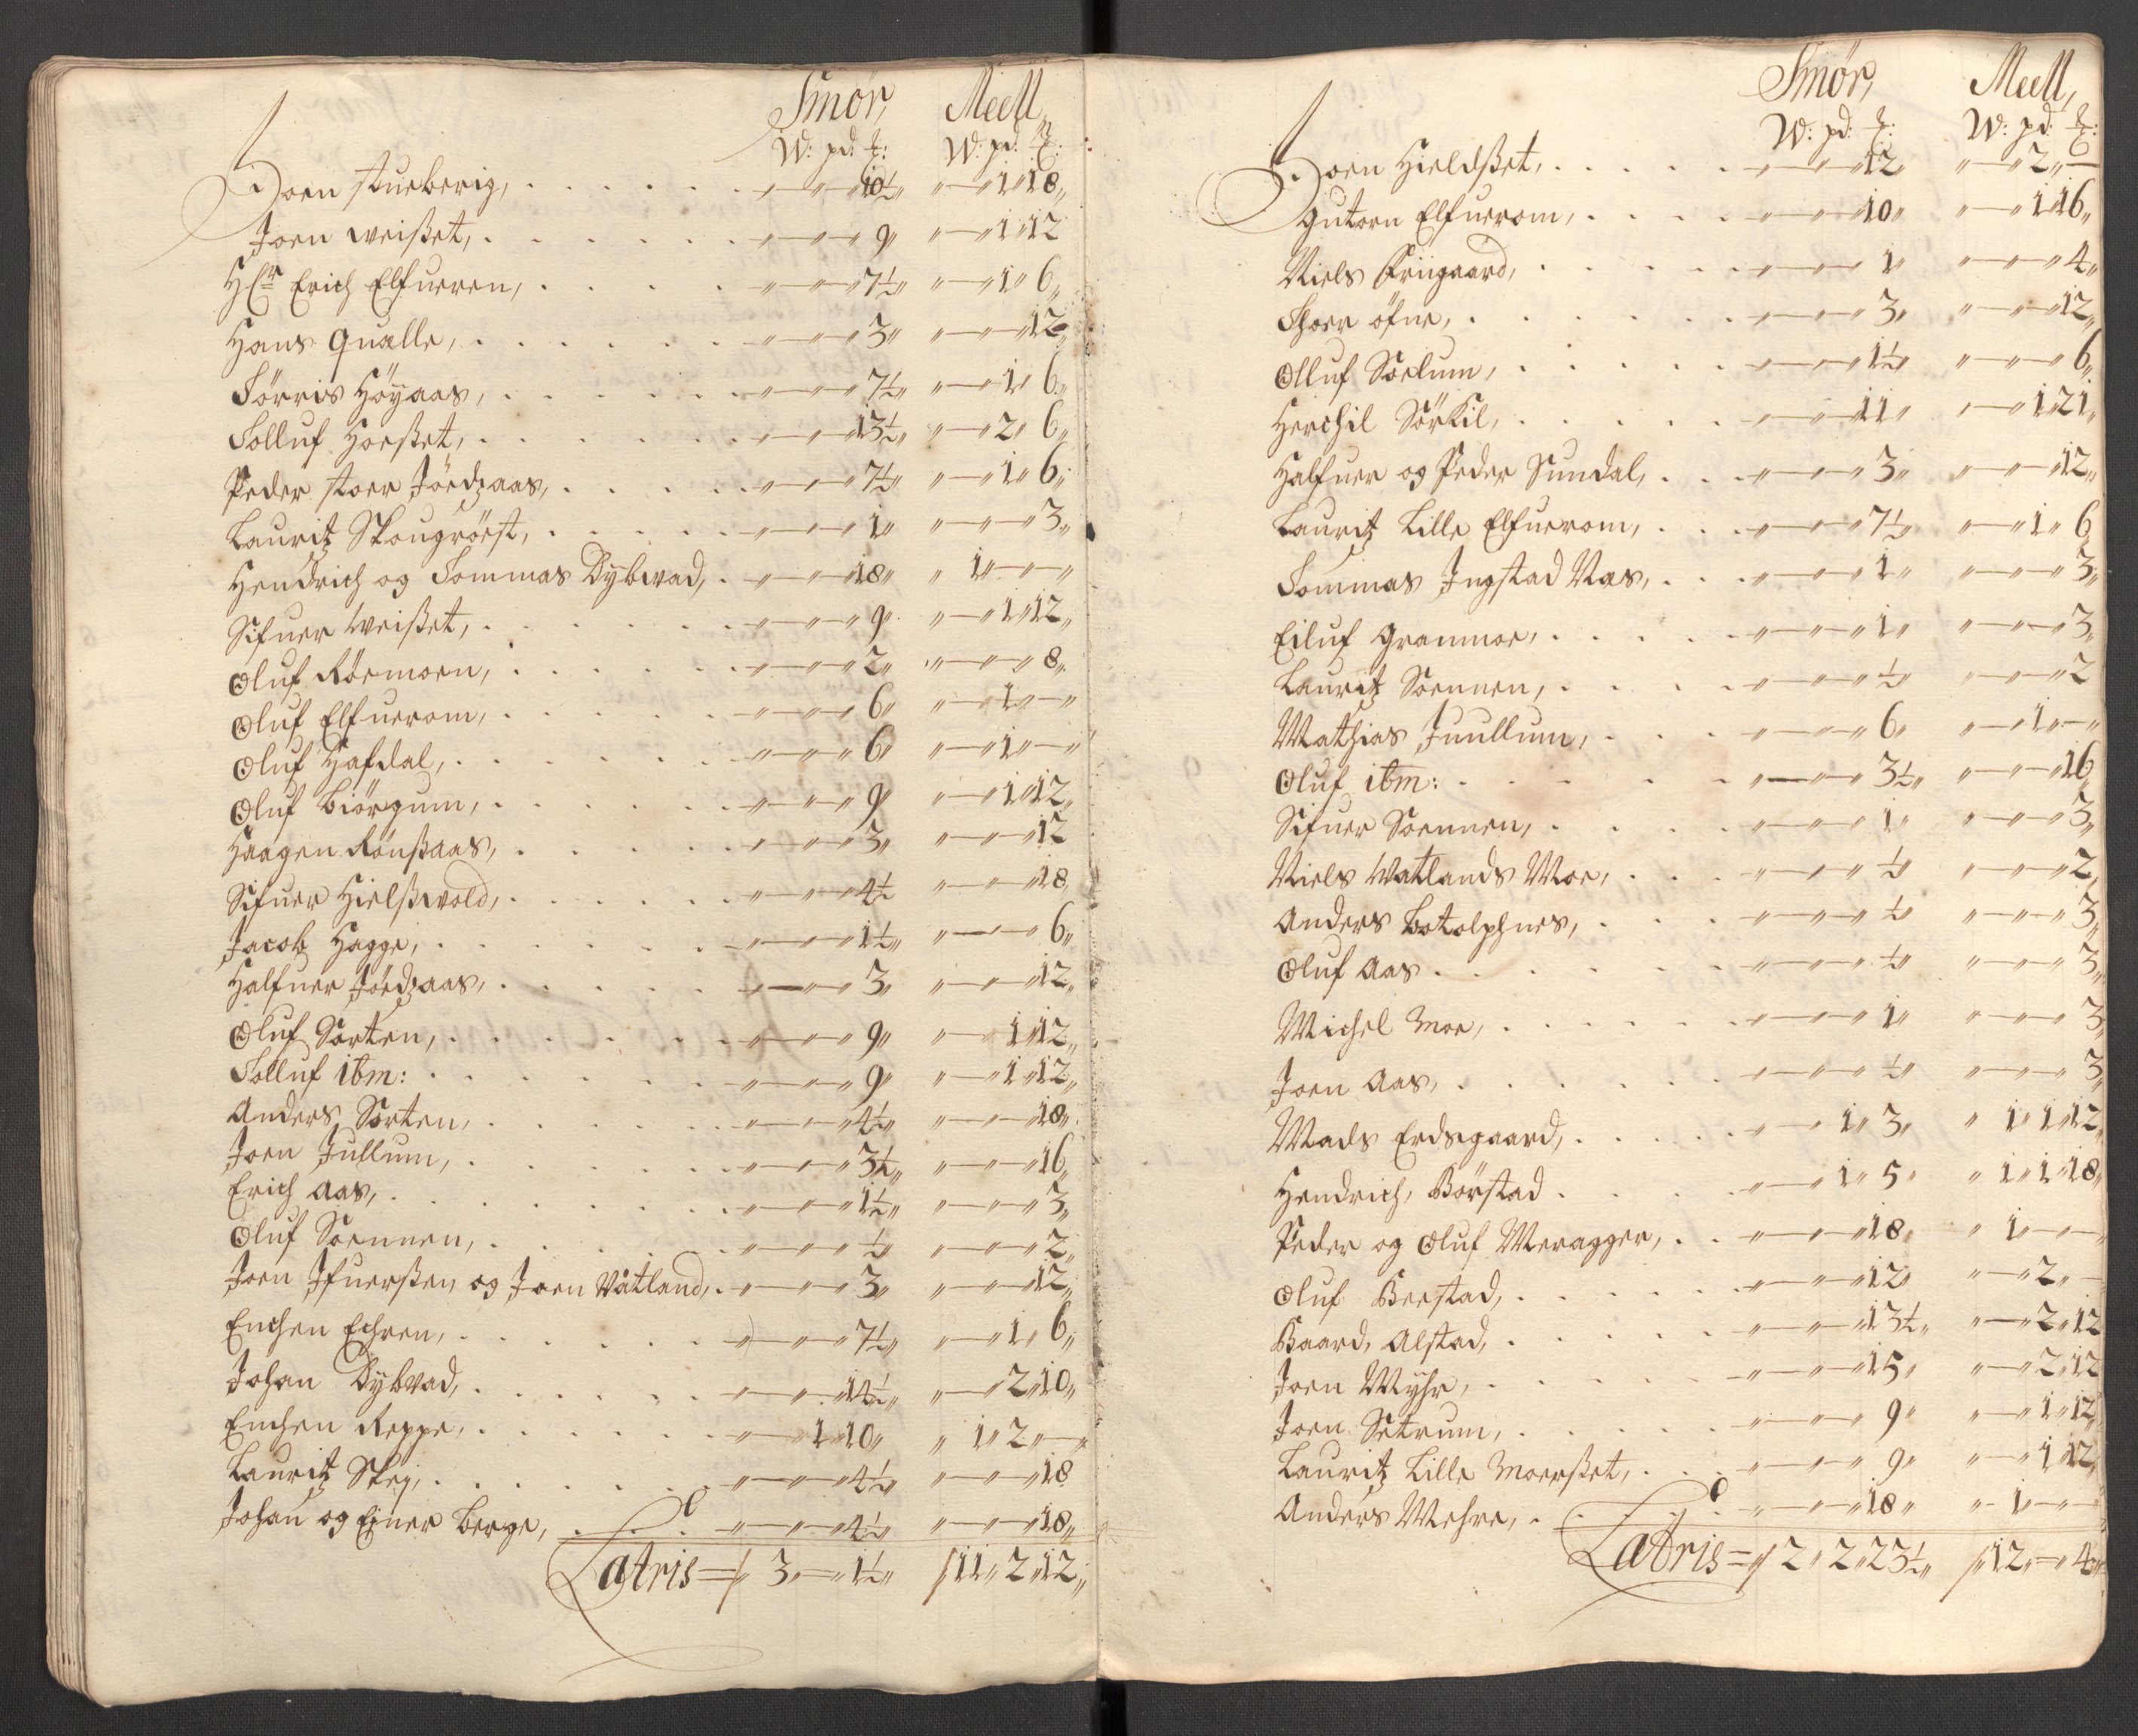 Smör, Meell,
W: pd: ℔: W: pd: ℔:
Joen stueberig, . . . . . „—„—„10½„ „—„1„18„
Joen weißet, . . . . . „—„—„9„ „—„1„12
Hr Erich Elfueren, . . . . „—„—„7½„ „—„1„6„
Hans qualle, . . . . . „—„—„3„ „—„—„12„
Törris Höyaas, . . . . . „—„—„7½„ „—„1„6„
Tolluf Hoeßet, . . . . . „—„—„13½„ „—„2„6„
Peder stoer Jördzaas, . . . . „—„—„7½„ „—„1„6„
Lauritz Skougröest, . . . . „—„—„1„ „—„—„3„
Hendrich og Tommas Dybwad, . „—„—„18„ „1„—„—„
Sifuer weißet, . . . . . „—„—„9„ „—„1„12„
Oluf Röemoen, . . . . . „—„—„2„ „—„—„8„
Oluf Elfuerom, . . . . . „—„—„6„ „—„1„—„
Oluf Hafdal, . . . . . „—„—„6„ „—„1„—„
Oluf Biörgum, . . . . . „—„—„9„ „—„1„12„
Haagen Rönßaas, . . . . . „—„—„3„ „—„—„12
Sifuer Hielßwold, . . . . . „—„—„4½ „—„—„18
Jacob Hagge, . . . . . „—„—„1½„ „—„—„6„
Halfuer Jördzaas, . . . . . „—„—„3„ „—„—„12„
Oluf Sorten, . . . . . „—„—„9„ „—„1„12„
Tolluf ibm: . . . . . „—„—„9„ „—„1„12„
Anders Sorten, . . . . . „—„—„4½„ „—„—„18„
Joen Jullum, . . . . . „—„—„3½„ „—„—„16„
Erich Aas, . . . . . „—„—„1½„ „—„—„3„
Oluf Soennen, . . . . . „—„—„½„ „—„—„2„
Joen Jfuerßen og Joen Vatland, . „—„—„3„ „—„—„12„
Enchen Echren, . . . . . „—„—„7½„ „—„1„6„
Johan Dybvad, . . . . . „—„—„14½„ „—„2„10„
Enchen Reppe, . . . . . „—„1„10„ „1„2„—„
Lauritz Skej, . . . . . „—„—„4½„ „—„—„18
Johan og Ejner Berge, . . . „—„—„4½„ „—„—„18„
Latris = 3„—„1½„ 11„2„12„
Smör, Meell,
W: pd: ℔: W: pd: ℔:
Joen Hieldßet, . . . . . „—„—„12„ „—„2„—
Gutorn Elfuerom, . . . . „—„—„10„ „—„1„16„
Niels Friigaard, . . . . . „—„—„1„ „—„—„4„
Thoer öfne, . . . . . „—„—„3„ „—„—„12„
Olluf Soelum, . . . . . „—„—„1½„ „—„—„6„
Herchil Sörkil, . . . . . „—„—„11„ „—„1„21„
Halfuer og Peder Sundal, . . . „—„—„3„ „—„—„12„
Lauritz Lille Elfuerom, . . . „—„—„7½„ „—„1„6
Tommas Ingstad Nas, . . . „—„—„1„ „—„—„3„
Eiluf Granmoe, . . . . . „—„—„1„ „—„—„3„
Lauritz Soennen, . . . . „—„—„½„ „—„—„2
Mathias Juullum, . . . . „—„—„6„ „—„1„—„
Oluf ibm: . . . . . „—„—„3½„ „—„—„16„
Sifuer Soennen, . . . . „—„—„1„ „—„—„3„
Niels Watlands Moe, . . . „—„—„½„ „—„—„2„
Anders Botolphnes, . . . . „—„—„½„ „—„—„3„
Oluf Aas . . . . . „—„—„½„ „—„—„3„
Michel Moe, . . . . . „—„—„1„ „—„—„3„
Joen Aas, . . . . . „—„—„½„ „—„—„3„
Mads Erdsgaard, . . . . . „—„1„3„ „1„1„12„
Hendrich, Börstad . . . . „—„1„5„ „1„1„18„
Peder og Oluf Meragger, . . „—„—„18„ „1„—„—„
Oluf Beestad, . . . . . „—„—„12„ „—„2„—
Baard, Alstad, . . . . . „—„—„13½„ „—„2„12
Joen Myhr, . . . . . „—„—„15„ „—„2„12
Joen Setrum, . . . . . „—„—„9„ „—„1„12„
Lauritz Lille Moerßet, . . . „—„—„9„ „—„1„12„
Anders Mehre, . . . . „—„—„18„ „1„—„—
Latris = 2„2„23½„ 12„—„4„